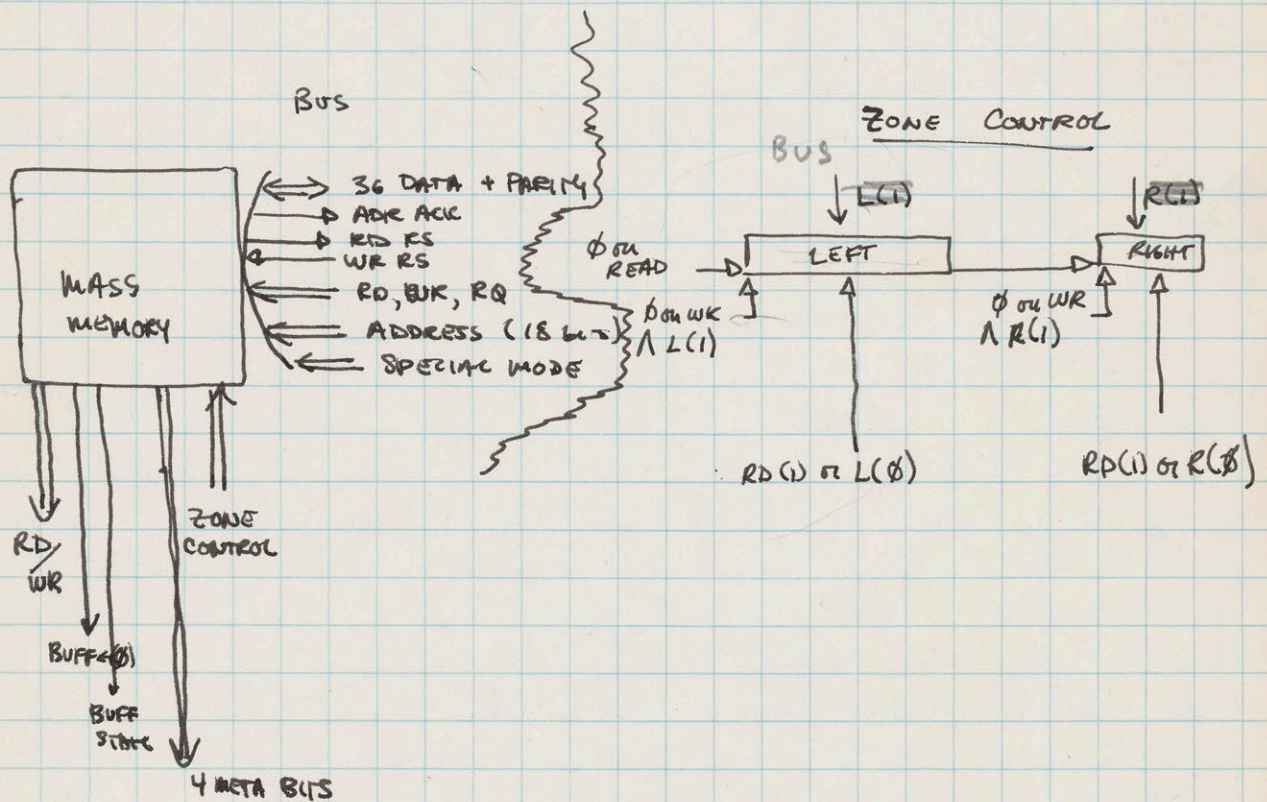 BUS
36 DATA + PARITY
ADR ACK
RD RS
WR RS
RD, WR, RQ
ADDRESS (18 bits)
SPECIAL MODE
MASS
MEMORY
RD/
WR
BUFF←(Ø)
BUFF
4 META BITS
ZONE
CONTROL
ZONE CONTROL
BUS
L(1)
R(1)
Ø on
READ
LEFT
RIGHT
Ø on WR
Λ L(1)
Ø on WR
Λ R(1)
RD(1) or L(Ø)
RD(1) or R(Ø)